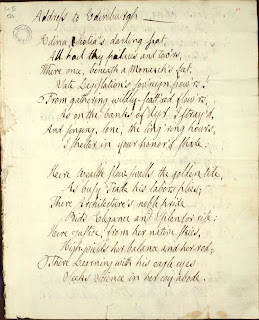 Address to Edinburgh
Edina, Scotia's darling seat,
All hail thy palaces and tow'rs,
Where once, beneath a Monarch's feet,
Sat Legislation's sovereign pow'rs!
From marking wildly-scatt'red flow'rs,
As on the banks of Ayr I stray'd,
And singing, lone, the ling'ring hours,
I shelter in your honor'd shade.
Here Wealth still swells the golden tide,
As busy Trade his labors plies;
There Architecture's noble pride
Bids Elegance and Splendor rise:
Here Justice, from her native skies,
High wields her balance and her rod;
There Learning with his eagle eyes
Seeks Science in her coy abode.